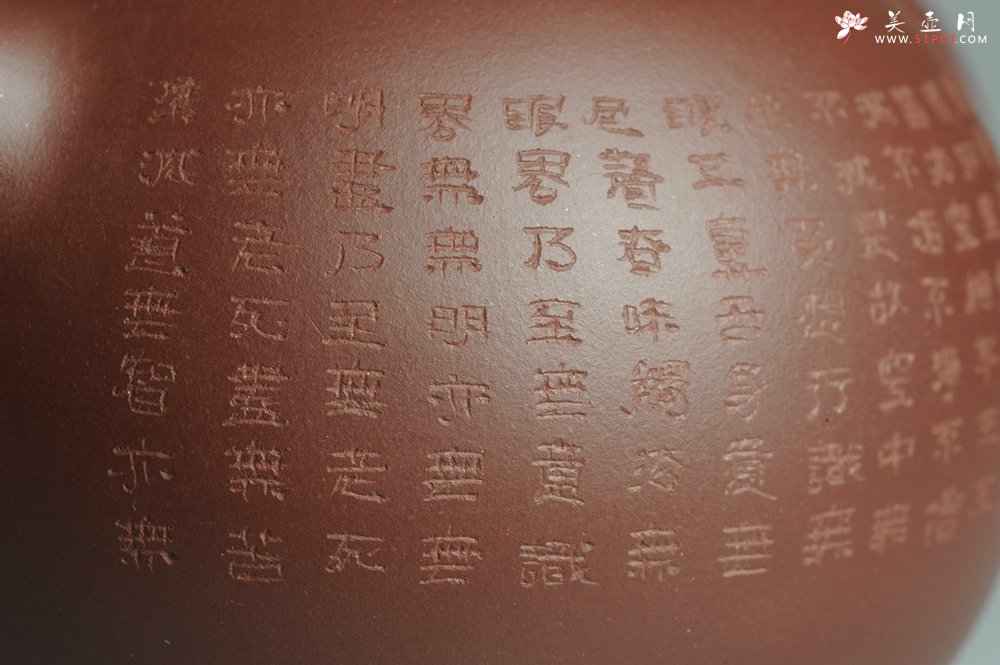 滅不垢不淨不增
不減是故空中無
色無受想行識無
眼耳鼻舌身意無
色聲香味觸法無
眼界乃至無意識
界無無明亦無無
明盡乃至無老死
亦無老死盡無苦
集滅道無智亦無
美壺网
WWW.51POT.COM